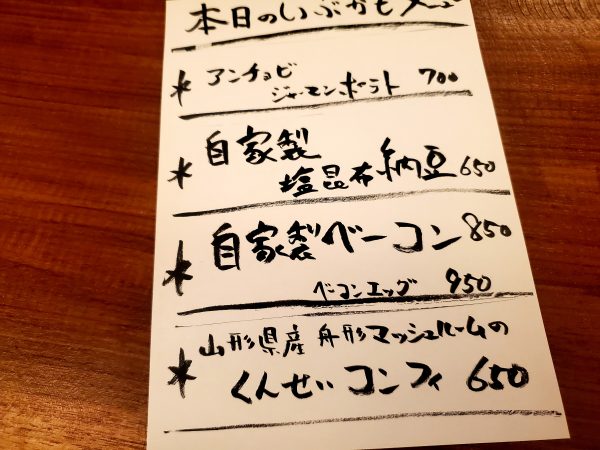 本日のいぶかもメニュー
* アンチョビ
ジャーマンポテト 700
* 自家製
塩昆布納豆 650
* 自家製ベーコン 850
ベーコンエッグ 950
* 山形県産 舟形マッシュルームの
くんせいコンフィ 650